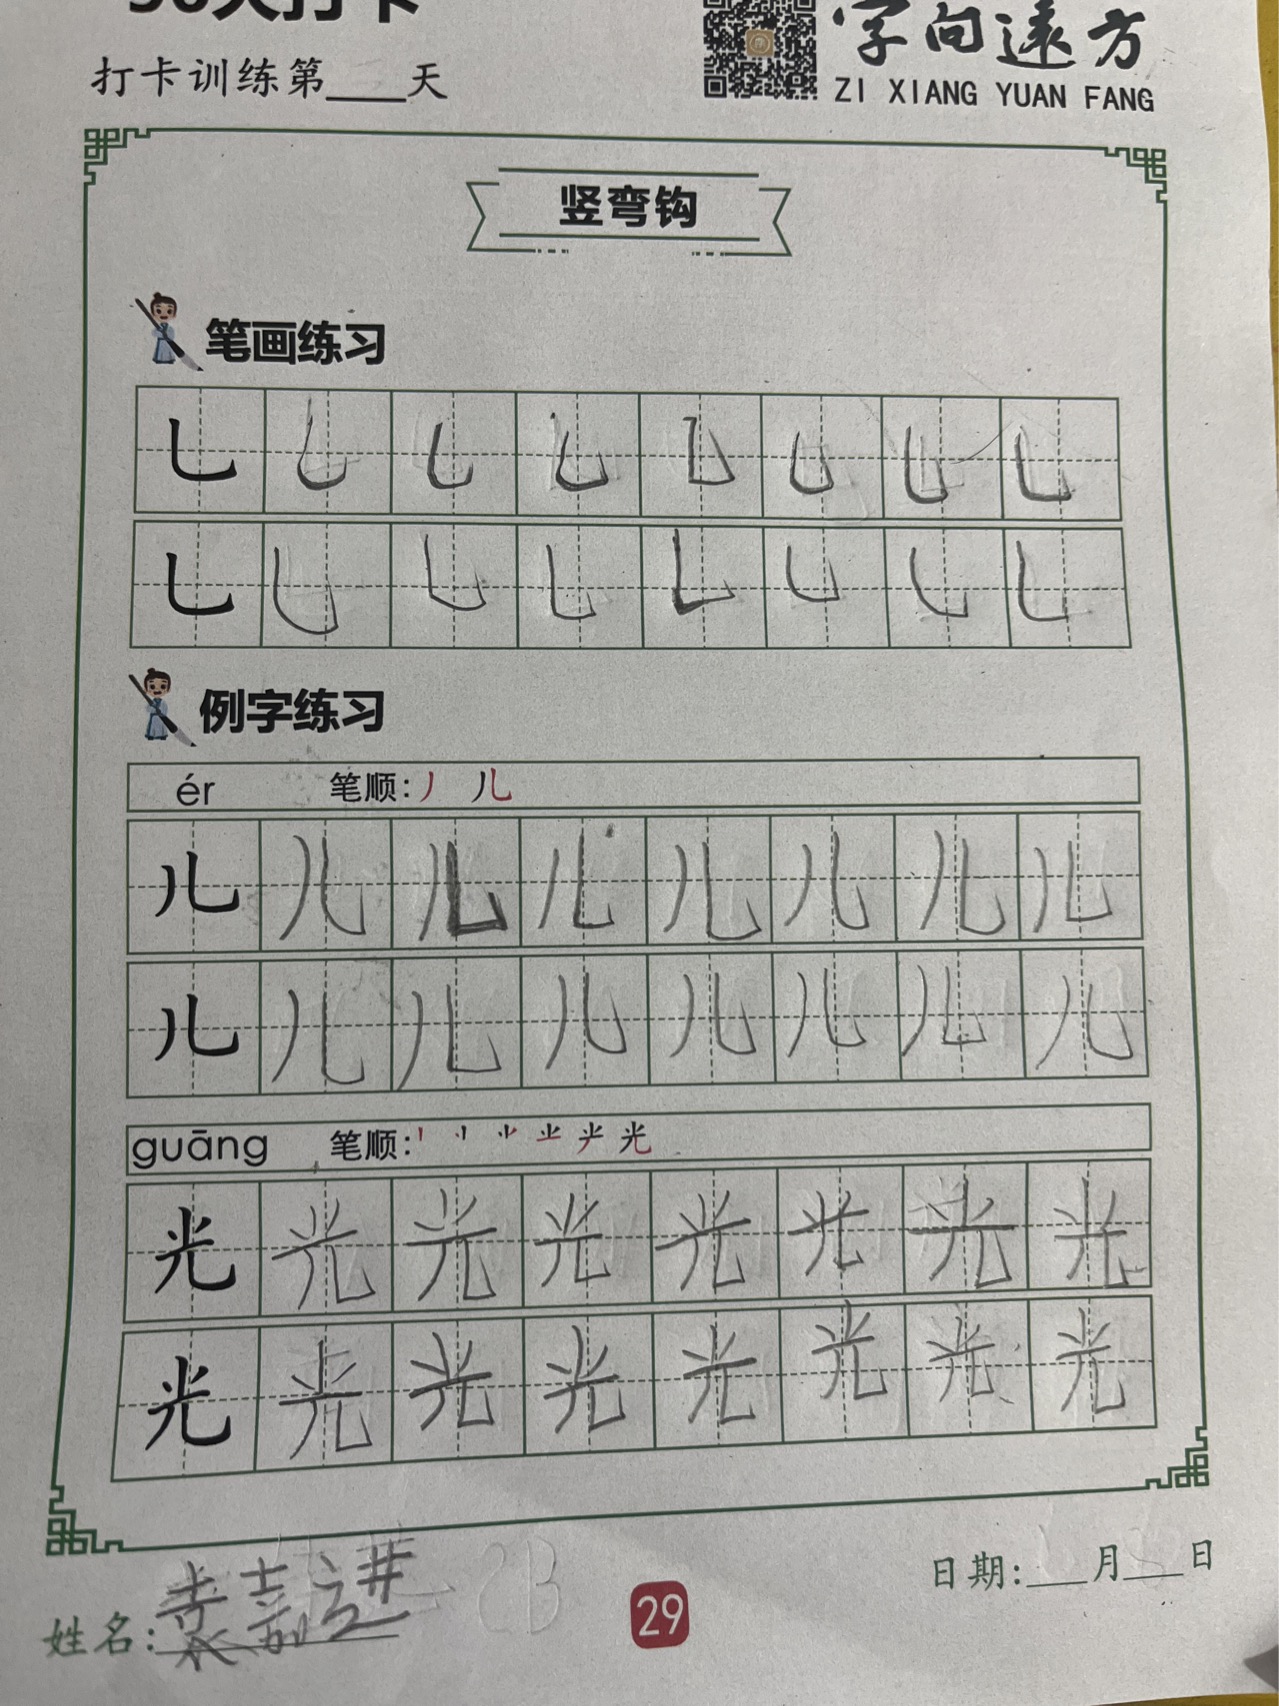 打卡训练第____天
字向遠方
ZI XIANG YUAN FANG
竖弯钩
笔画练习
乚 乚 乚 乚 乚 乚 乚 乚
乚 乚 乚 乚 乚 乚 乚 乚
例字练习
ér 笔顺：丿 儿
儿 儿 儿 儿 儿 儿 儿 儿
儿 儿 儿 儿 儿 儿 儿 儿
guāng 笔顺：光
光 光 光 光 光 光 光 光
光 光 光 光 光 光 光 光
姓名：嘉进
29
日期：___月___日